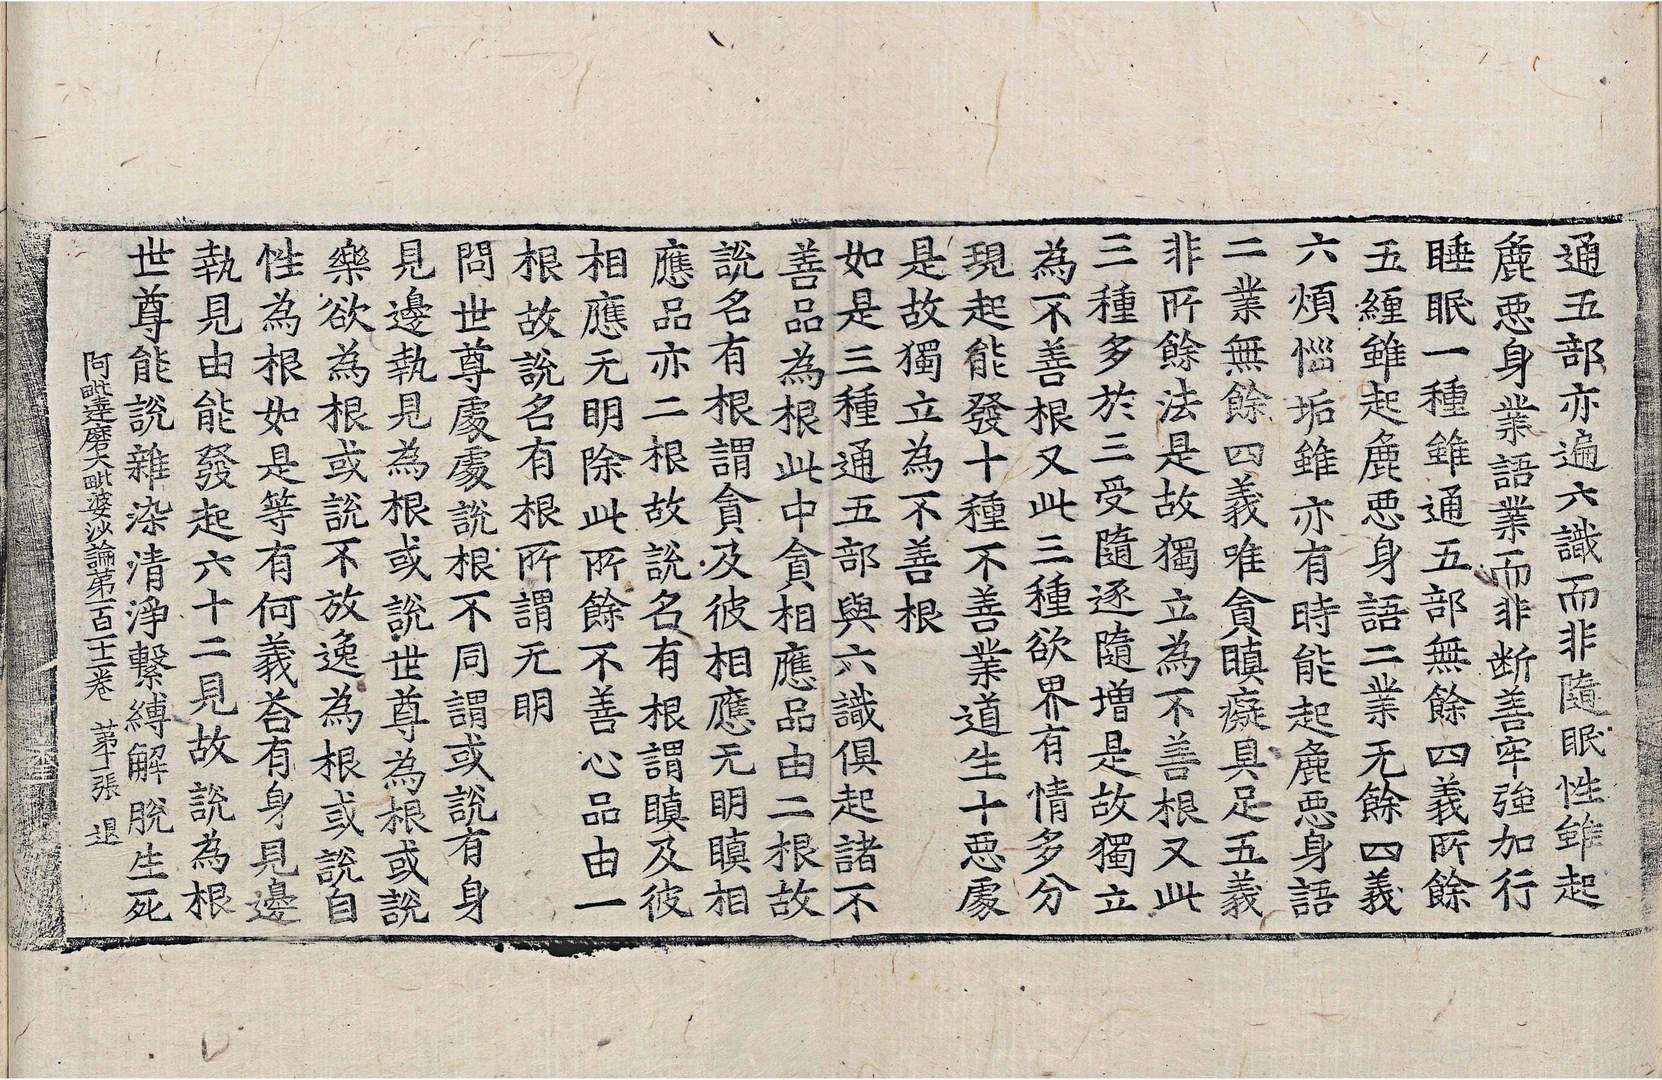 通五部亦遍六識而非隨眠性雖起
麁惡身業語業而非斷善牢強加行
睡眠一種雖通五部無餘四義所餘
五纏雖起麁惡身語二業无餘四義
六煩惱垢雖亦有時能起麁惡身語
二業無餘四義唯貪瞋癡具足五義
非所餘法是故獨立為不善根又此
三種多於三受隨逐隨增是故獨立
為不善根又此三種欲界有情多分
現起能發十種不善業道生十惡處
是故獨立為不善根
如是三種通五部與六識俱起諸不
善品為根此中貪相應品由二根故
說名有根謂貪及彼相應无明瞋相
應品亦二根故說名有根謂瞋及彼
相應无明除此所餘不善心品由一
根故說名有根所謂无明
問世尊處處說根不同謂或說有身
見邊執見為根或說世尊為根或說
樂欲為根或說不放逸為根或說自
性為根如是等有何義荅有身見邊
執見由能發起六十二見故說為根
世尊能說雜染清淨繫縛解脫生死
阿毗達磨大毗婆沙論第一百十二卷 第十張 退